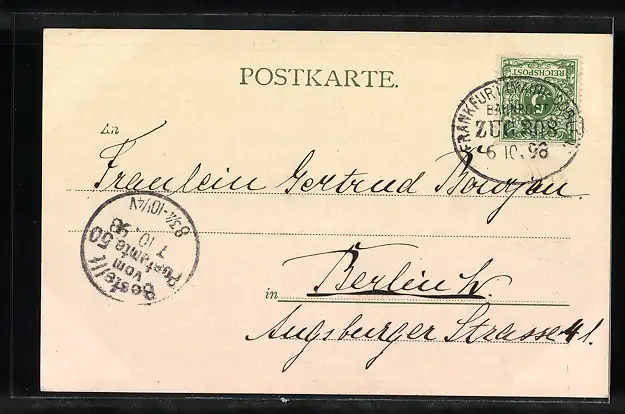 POSTKARTE.
REICHSPOST
5
FRANKFURT
BAHNPOST
ZUG 208
6 10. 98
An
Fräulein Gertrud
Bestellt
vom
Postamte 50
7. 10. 98
8¾-10¼N
in Berlin W.
Augsburger Strasse 41.